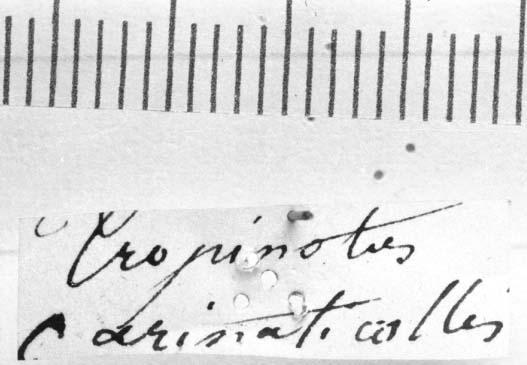 Tropinotus
carinaticollis